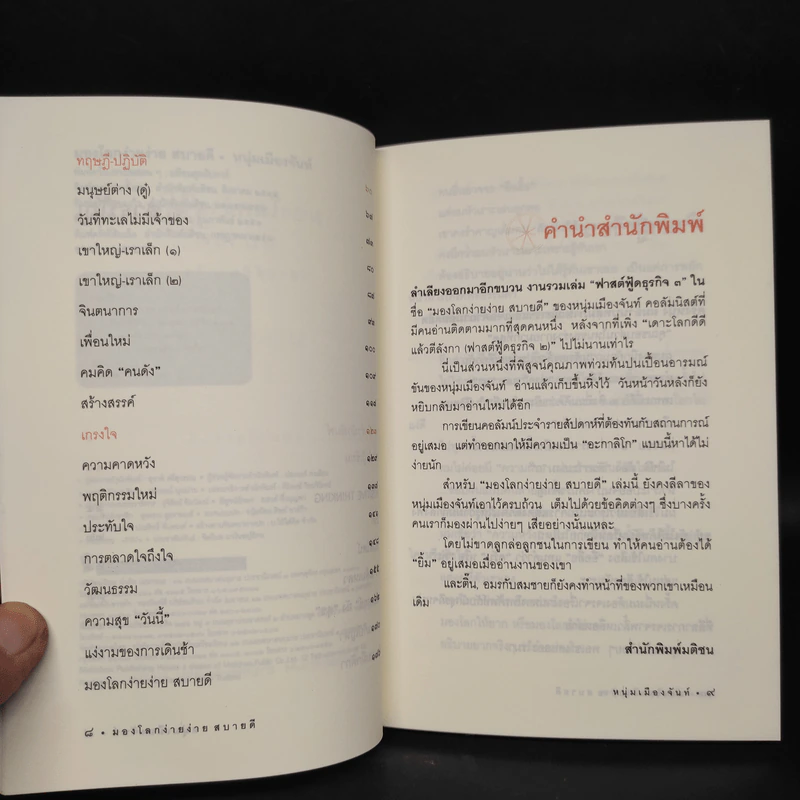 ทฤษฎี-ปฏิบัติ
มนุษย์ต่าง (ดู๋)
วันที่ทะเลไม่มีเจ้าของ
เขาใหญ่-เราเล็ก (๑)
เขาใหญ่-เราเล็ก (๒) ๘๐
จินตนาการ
เพื่อนใหม่
คมคิด “คนดัง” ๑๐๐
สร้างสรรค์ ๑๐๙
เกรงใจ
ความคาดหวัง
พฤติกรรมใหม่
ประทับใจ
การตลาดใจถึงใจ
วัฒนธรรม
ความสุข “วันนี้”
แง่งามของการเดินช้า
มองโลกง่ายง่าย สบายดี
๘ • มองโลกง่ายง่าย สบายดี
คำนำสำนักพิมพ์
ลำเลียงออกมาอีกขบวน งานรวมเล่ม “ฟาสต์ฟู้ดธุรกิจ ๓” ใน
ชื่อ “มองโลกง่ายง่าย สบายดี” ของหนุ่มเมืองจันท์ คอลัมนิสต์ที่
มีคนอ่านติดตามมากที่สุดคนหนึ่ง หลังจากที่เพิ่ง “เดาะโลกดีดี
แล้วตีลังกา (ฟาสต์ฟู้ดธุรกิจ ๒)” ไปไม่นานเท่าไร
นี่เป็นส่วนหนึ่งที่พิสูจน์คุณภาพท่วมท้นปนเปื้อนอารมณ์
ขันของหนุ่มเมืองจันท์ อ่านแล้วเก็บขึ้นหิ้งไว้ วันหน้าวันหลังก็ยัง
หยิบกลับมาอ่านใหม่ได้อีก
การเขียนคอลัมน์ประจำรายสัปดาห์ที่ต้องทันกับสถานการณ์
อยู่เสมอ แต่ทำออกมาให้มีความเป็น “อะกาลิโก” แบบนี้หาได้ไม่
ง่ายนัก
สำหรับ “มองโลกง่ายง่าย สบายดี” เล่มนี้ ยังคงลีลาของ
หนุ่มเมืองจันท์เอาไว้ครบถ้วน เต็มไปด้วยข้อคิดต่างๆ ซึ่งบางครั้ง
คนเราก็มองผ่านไปง่ายๆ เสียอย่างนั้นแหละ
โดยไม่ขาดลูกล่อลูกชนในการเขียน ทำให้คนอ่านต้องได้
“ยิ้ม” อยู่เสมอเมื่ออ่านงานของเขา
และติ๋น, อมรกับสมชายก็ยังคงทำหน้าที่ของพวกเขาเหมือน
เดิม
สำนักพิมพ์มติชน
หนุ่มเมืองจันท์ • ๙